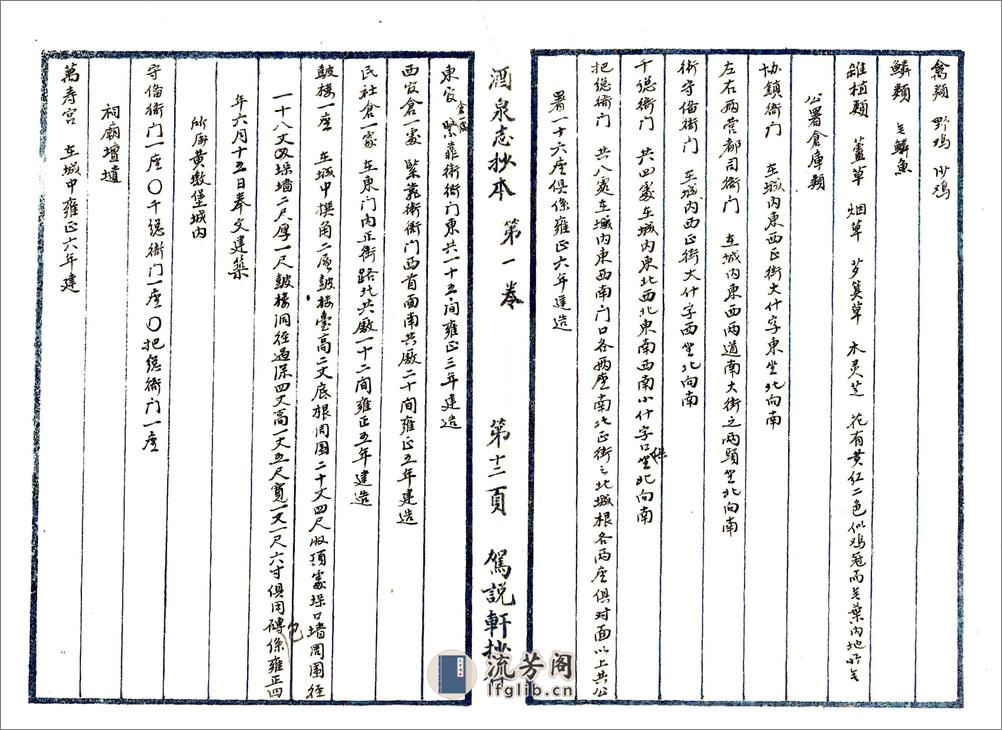 禽類　野鸡　沙鸡
鱗類　无鱗魚
雜植類　蘆草　烟草　芗箕草　木灵芝　花有黄红二色似鸡冠而无葉内地所无
公署倉庫類
協鎮衙门　在城内東西正街大什字東坐北向南
左右两营都司衙门　在城内東西两道南大街之两頭坐北向南
街守俻衙门　在城内西正街大什字西坐北向南
千總衙门　共四處在城内東北西北東南西南小什字口俱坐北向南
把總衙门　共八處在城内東西南门口各两座南北正街之北城根各两座俱对面以上共公
署一十六座俱係雍正六年建造
酒泉志抄本　第一卷　第十二頁　駕説軒抄
東官倉一處　緊靠衙衙门東共一十五间雍正三年建造
西官倉一處　緊靠衙衙门西首面南共廒二十间雍正五年建造
民社倉一處　在東门内正街路北共廒一十二间雍正五年建造
鼓楼一座　在城中撰角二層鼓楼臺高二丈底根周围二十丈四尺收顶處垛口墙周围径
一十八丈又垛墙二尺厚一尺鼓楼洞径过深四丈高一丈五尺寬一丈一尺六寸俱用磚包係雍正四
年六月十五日奉文建築
所屬黄墩堡城内
守俻衙门一座〇千總衙门一座〇把總衙门一座
祠廟壇壝
萬寿宫　在城中雍正六年建
流芳阁
lfglib.cn